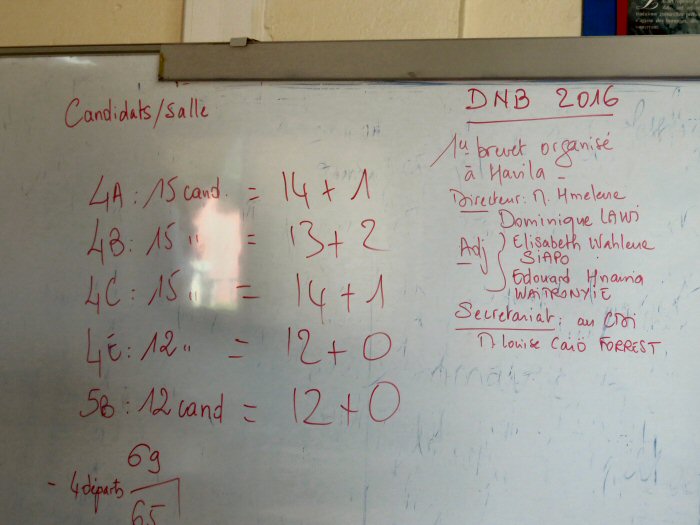 Candidats/salle
4A : 15 cand. = 14 + 1
4B : 15 " = 13 + 2
4C : 15 " = 14 + 1
4E : 12 " = 12 + 0
5B : 12 cand = 12 + 0
69
- 4 départs
65
DNB 2016
1er brevet organisé
à Havila -
Directeur : M. Hmelene
Dominique LAWI
Adj { Elisabeth Wahlena
SIAPO
Edouard Hnainia
WAITRONYIE
Secretariat : au CDI
M. Louise Caïo FORREST